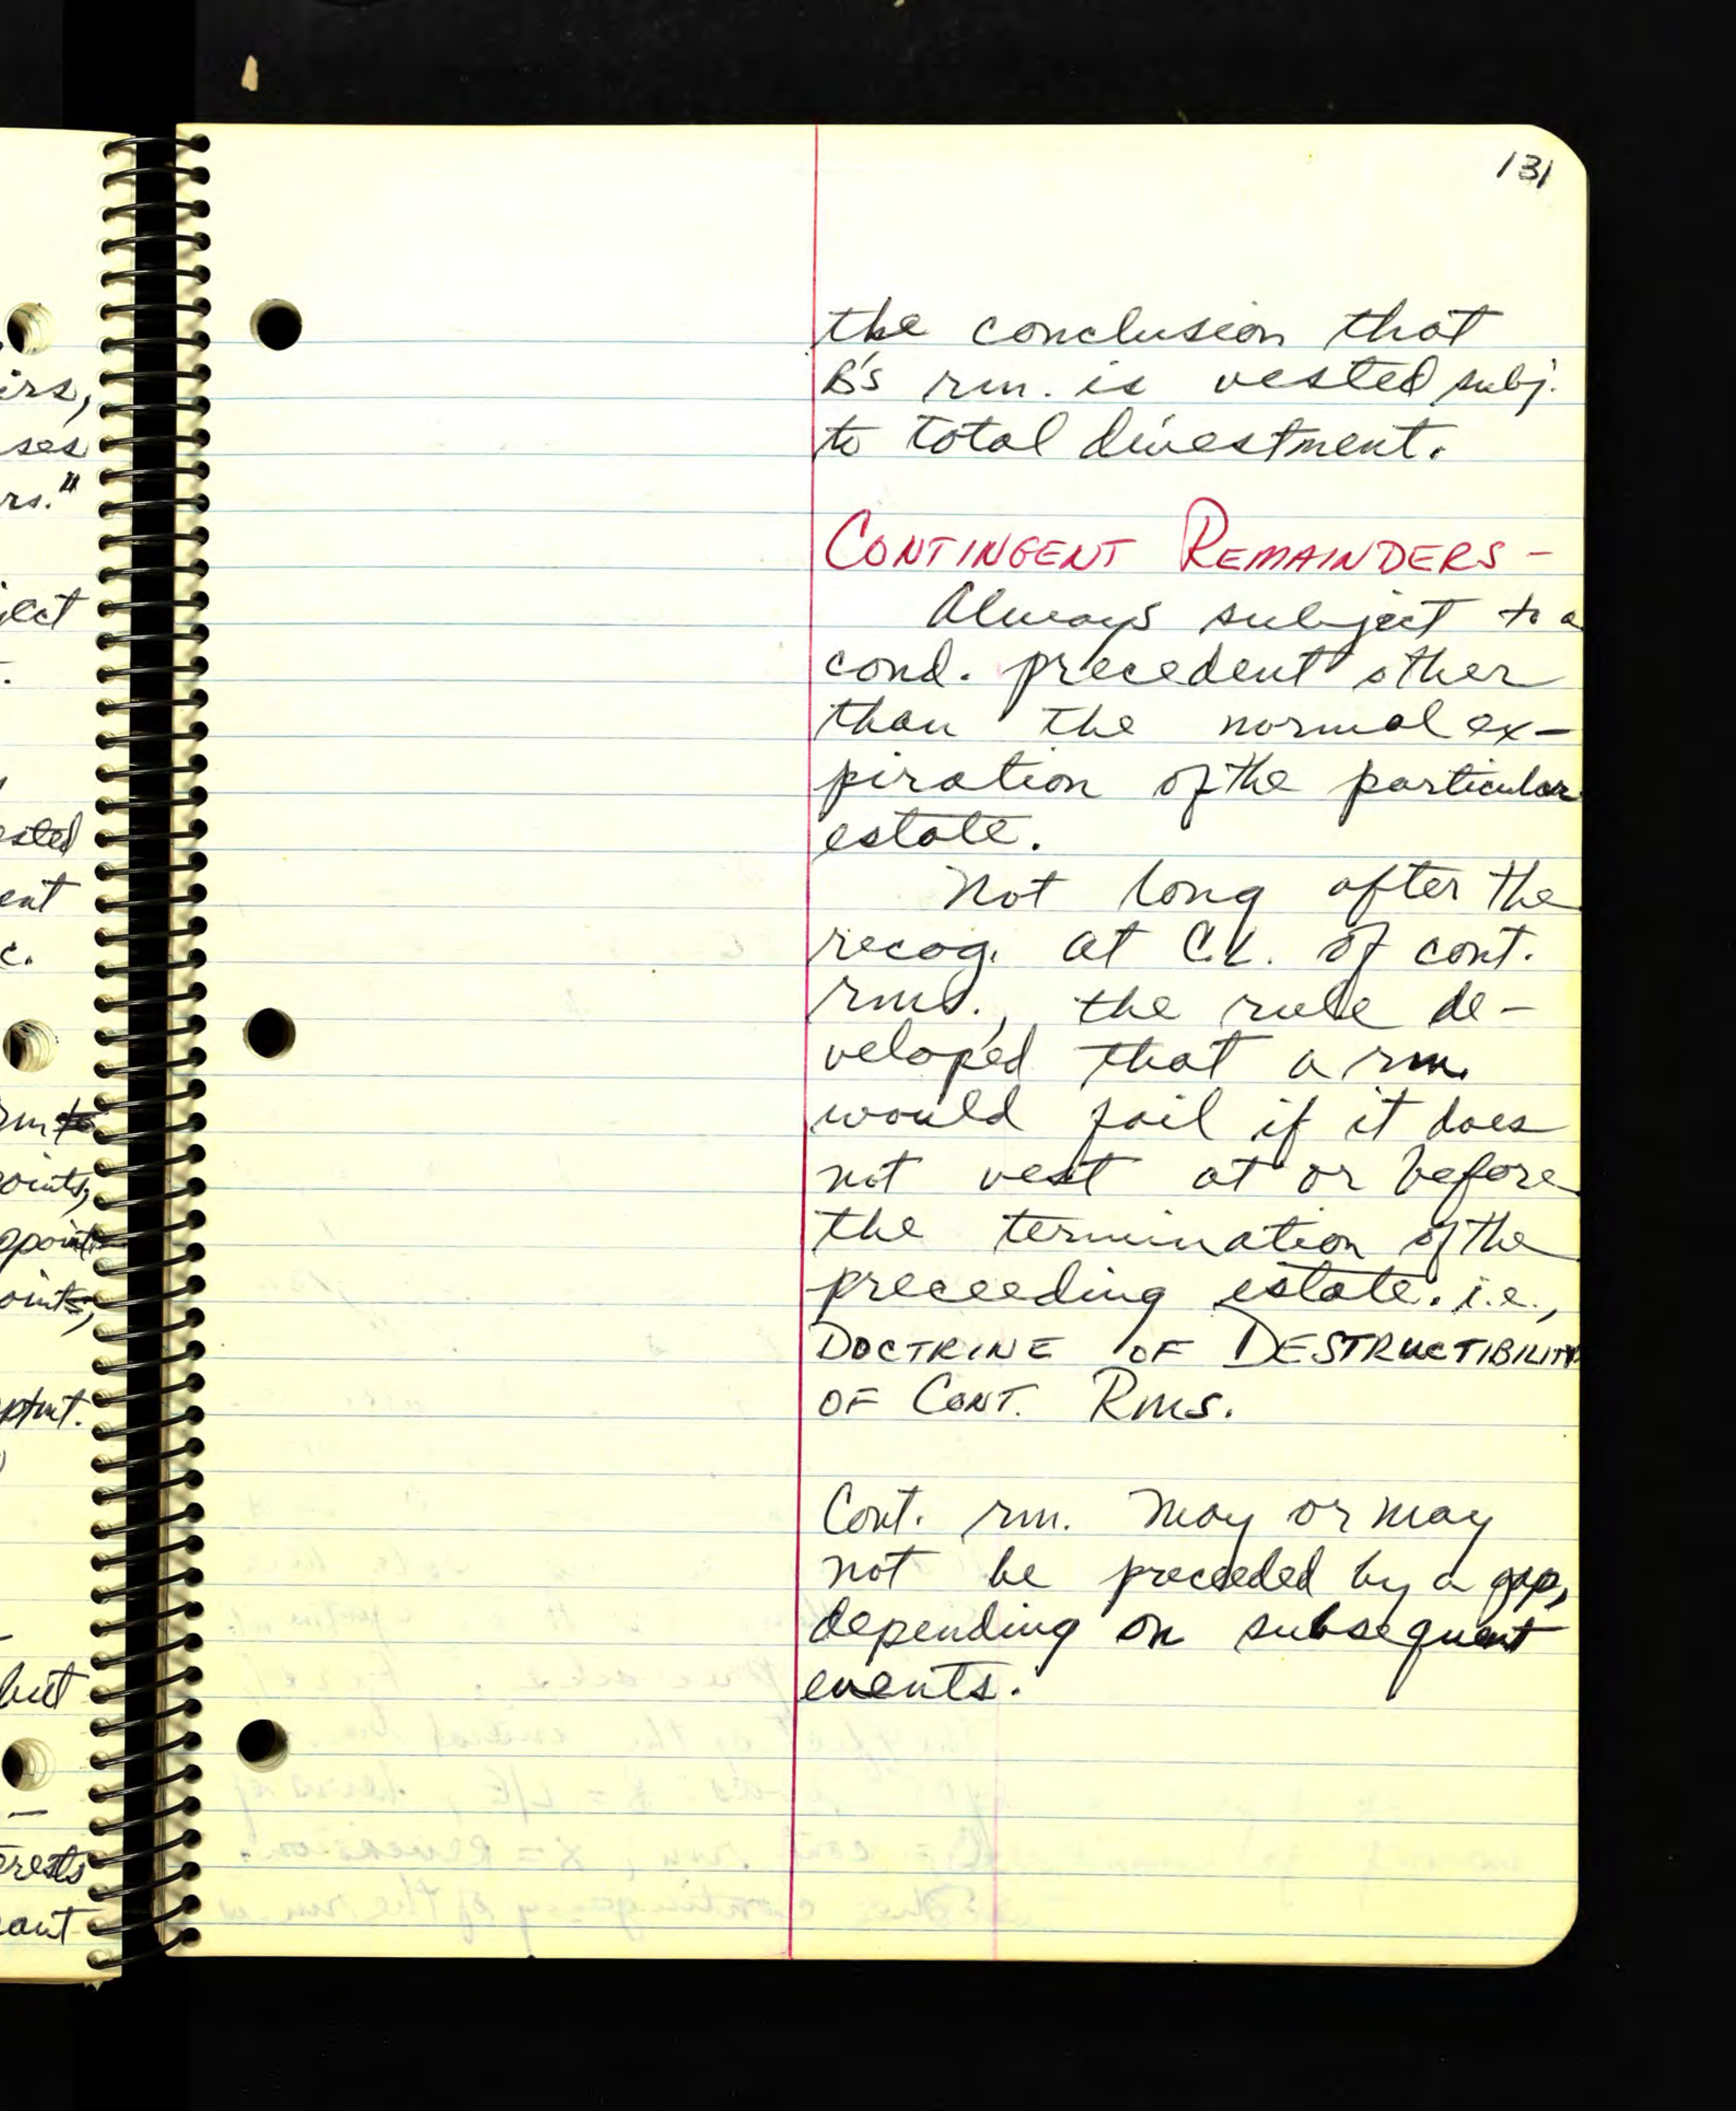 irs,
ses
rs."
ject
ested
ent
c.
rm to
oints,
ppoint
oints,
ptmt.
but
erests
ant
131
the conclusion that
B's rm. is vested subj.
to total divestment.
CONTINGENT REMAINDERS -
Always subject to a
cond. precedent other
than the normal ex-
piration of the particular
estate.
Not long after the
recog. at C.L. of cont.
rms., the rule de-
veloped that a rm.
would fail if it does
not vest at or before
the termination of the
preceeding estate. i.e.,
DOCTRINE OF DESTRUCTIBILITY
OF CONT. RMS.
Cont. rm. may or may
not be preceeded by a gap,
depending on subsequent
events.